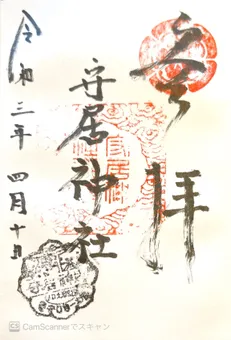 奉拝
守居神社
令和三年 四月十日
CS CamScannerでスキャン